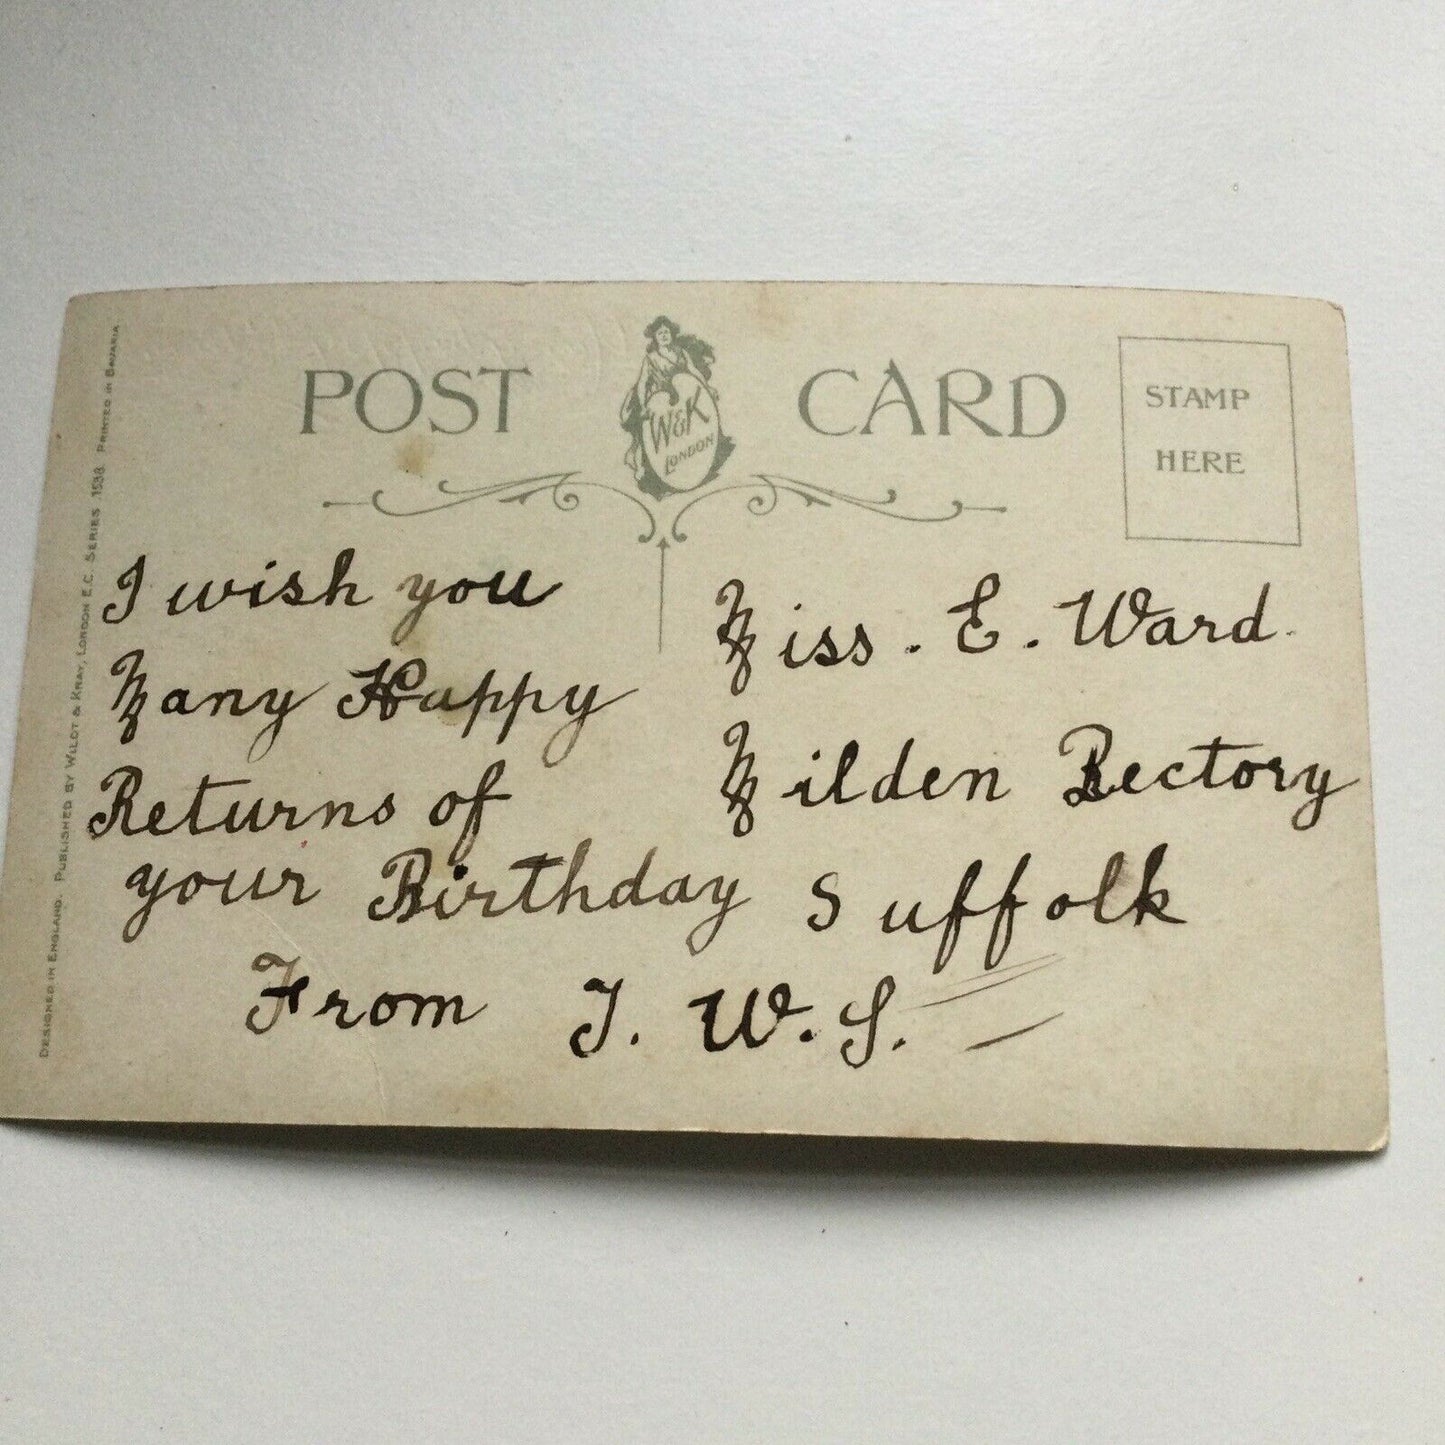 POST CARD
W&K
LONDON
STAMP
HERE
DESIGNED IN ENGLAND. PUBLISHED BY WILDT & KRAY, LONDON E.C. SERIES 1538. PRINTED IN BAVARIA
I wish you
Many Happy
Returns of
your Birthday
From J. W. S.
Miss. E. Ward.
Milden Rectory
Suffolk